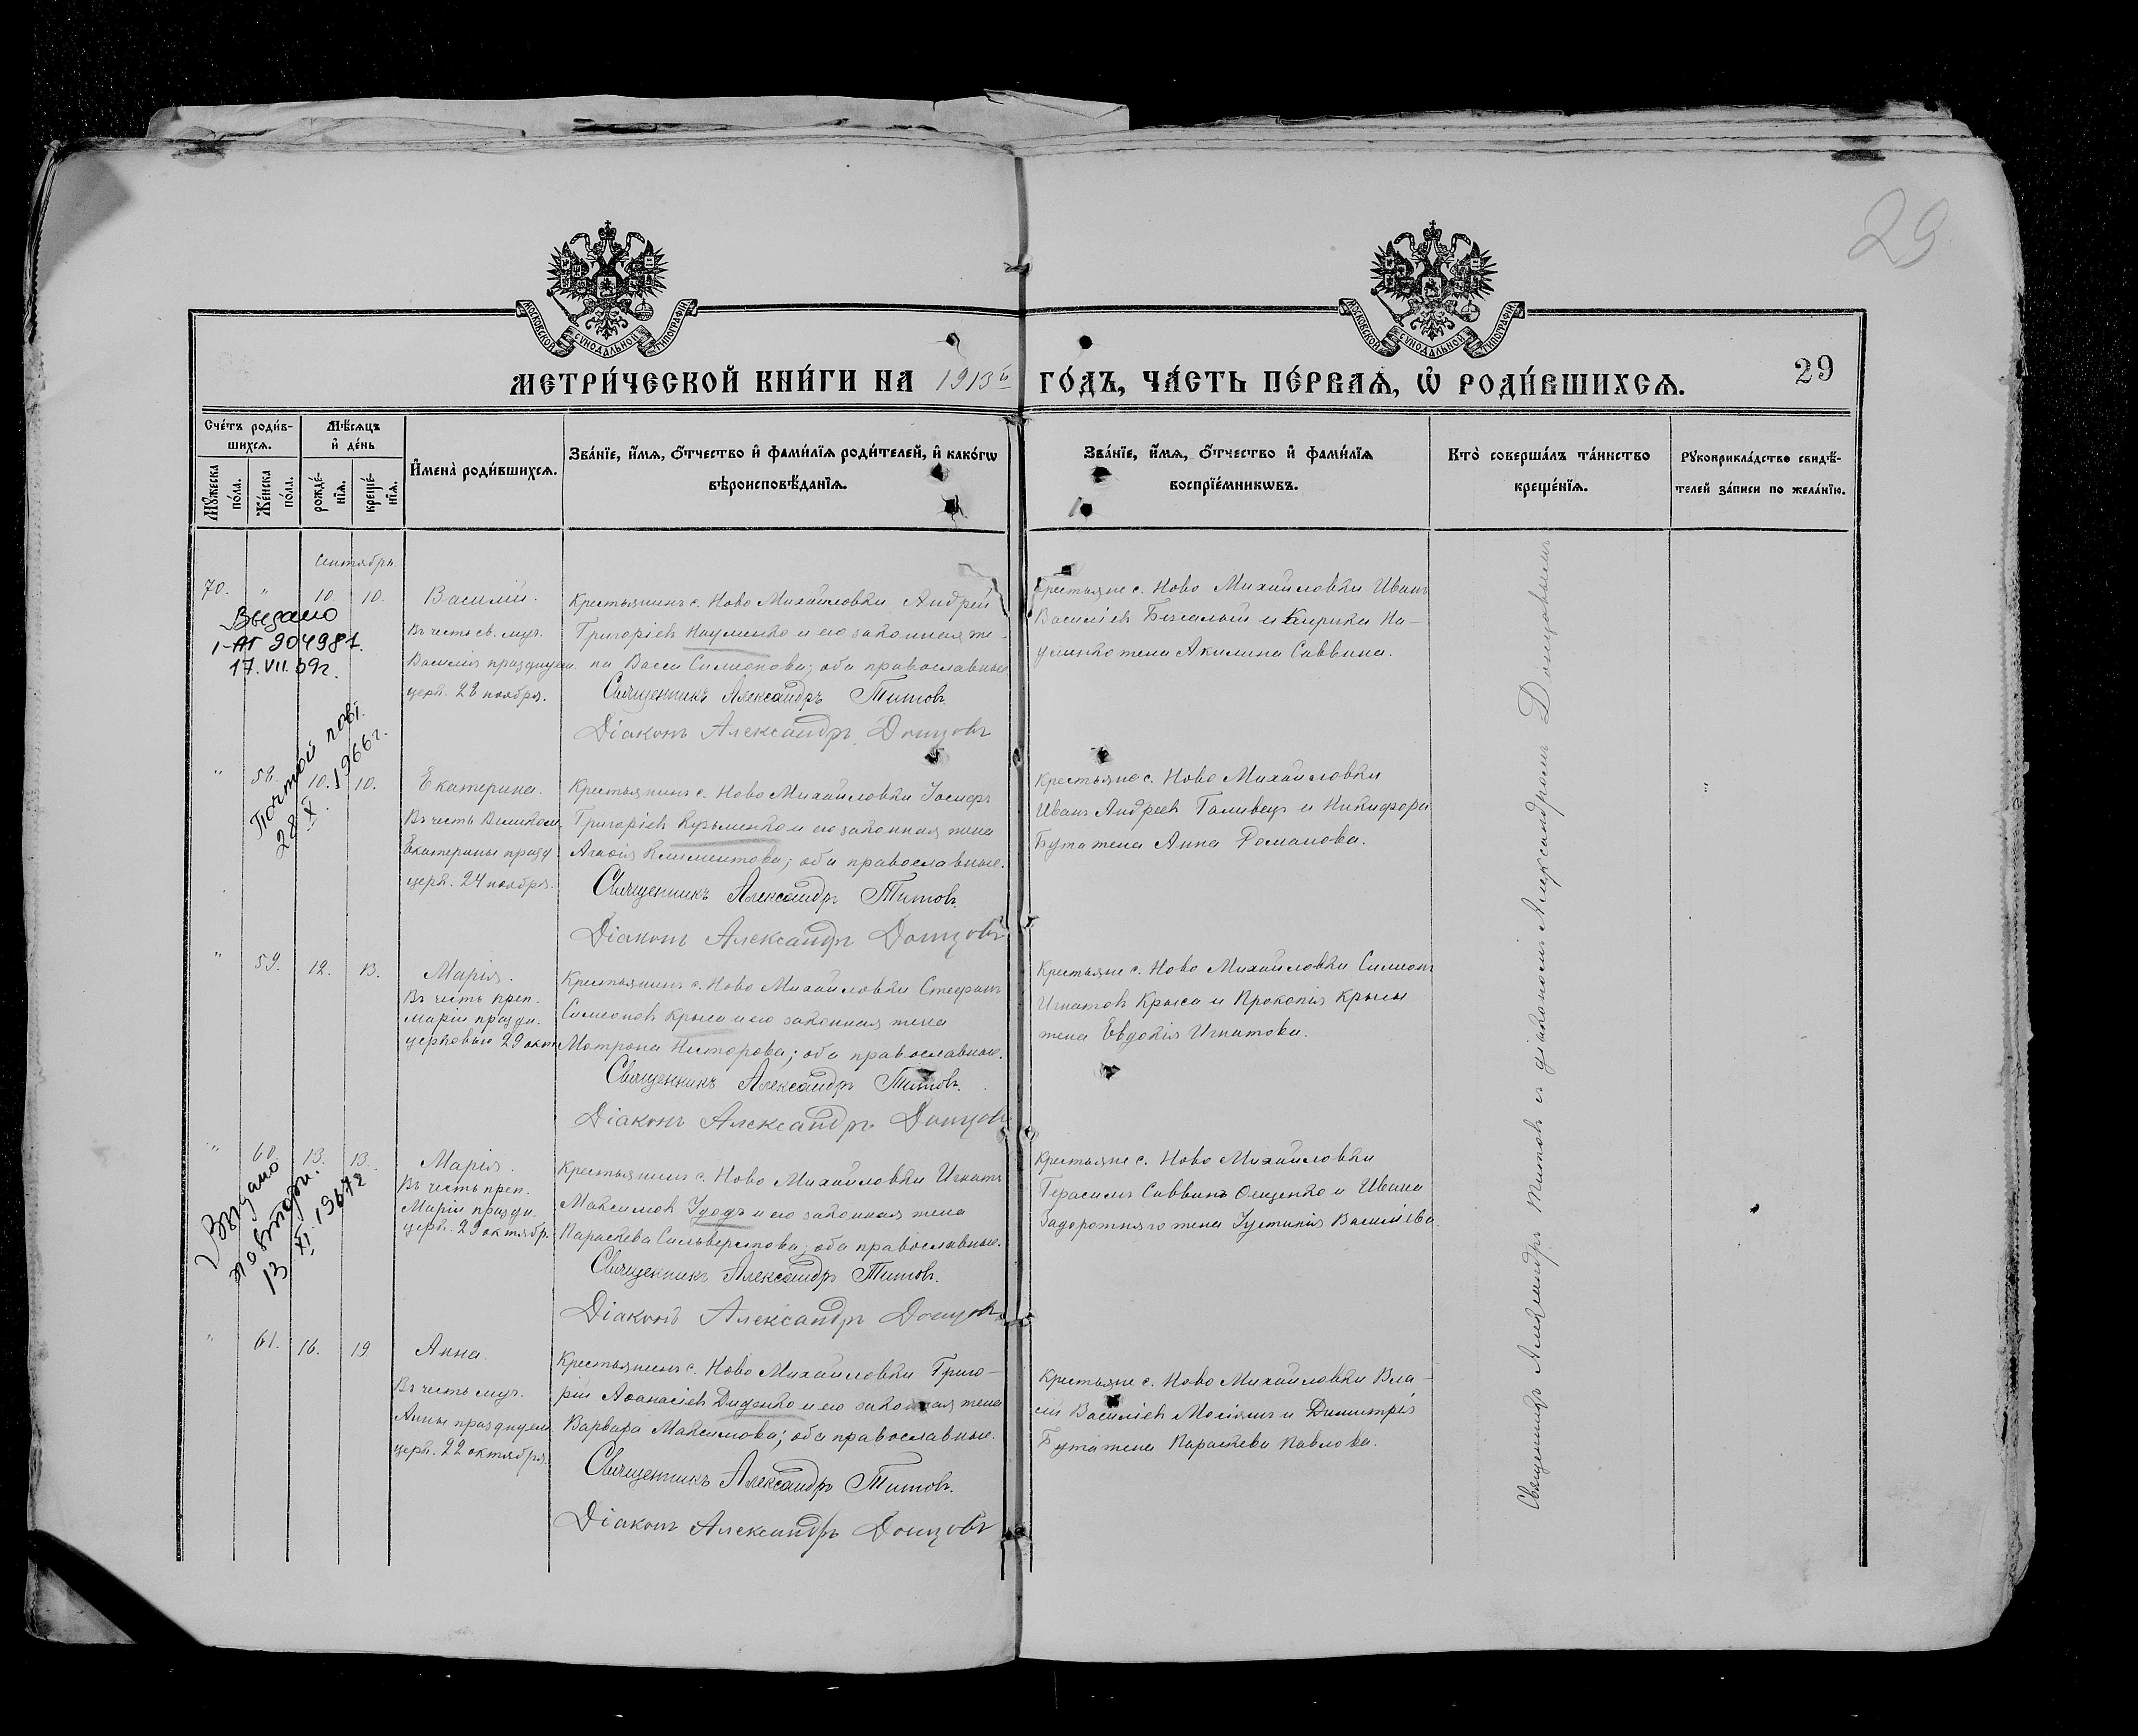 29
МОСКОВСКОЙ СѴНОДАЛЬНОЙ ТИПОГРАФІИ
МОСКОВСКОЙ СѴНОДАЛЬНОЙ ТИПОГРАФІИ
МЕТРИ́ЧЕСКОЙ КНИ́ГИ НА 1913й ГО́ДЪ, ЧА́СТЬ ПЕ́РВАѦ, Ѡ҆ РОДИ́ВШИХСѦ.
29
Сче́тъ роди́в-
шихсѧ.
Мꙋжеска по́ла.
Же́нска по́ла.
Мѣ́сѧцъ
и҆ де́нь
рожде́-
нїѧ.
креще́-
нїѧ.
И҆мена̀ роди́вшихсѧ.
Зва́нїе, и҆́мѧ, ѻ҆́тчество и҆ фами́лїѧ роди́телей, и҆ како́гѡ
вѣроисповѣ́данїѧ.
Зва́нїе, и҆́мѧ, ѻ҆́тчество и҆ фами́лїѧ
воспрїе́мникѡвъ.
Кто̀ соверша́лъ та́инство
креще́нїѧ.
Рꙋкоприкла́дство свидѣ́-
телей за́писи по жела́нїю.
Сентябрь.
70. " 10. 10.
Выдано
I-АГ 904987.
17.VII.69г.
Василій.
Въ честь св. муч.
Василія празднуем.
церк. 28 ноября.
Крестьянинъ с. Ново Михайловки Андрей
Григоріевъ Науменко и его законная же-
на Васса Симеонова; оба православные
Священникъ Александръ Титовъ.
Діаконъ Александръ Донцовъ
Крестьяне с. Ново Михайловки Иванъ
Василіевъ и Кирика На-
уменко жена Акилина Саввина.
" 58. 10. 10.
Почтой повт.
28 X. 1966г.
Екатерина.
Въ честь Великом.
Екатерины празд.
церк. 24 ноября.
Крестьянинъ с. Ново Михайловки Іосифъ
Григоріевъ Кузьменко и его законная жена
Агафія Климентова; оба православные.
Священникъ Александръ Титовъ.
Діаконъ Александръ Донцовъ
Крестьяне с. Ново Михайловки
Иванъ Андреевъ Голивецъ и Никифора
Бута жена Анна Романова.
"
" 59. 12. 13.
Марія.
Въ честь преп.
Маріи праздн.
церковью 29 окт.
Крестьянинъ с. Ново Михайловки Стефанъ
Симеоновъ Крыса и его законная жена
Матрона Нисторова; оба православные.
Священникъ Александръ Титовъ.
Діаконъ Александръ Донцовъ
Крестьяне с. Ново Михайловки Симеонъ
Игнатовъ Крыса и Прокопія Крысы
жена Евдокія Игнатова.
" 60. 13. 13.
Выдано
повторн.
13 XI. 1967г
Марія.
Въ честь преп.
Маріи праздн.
церк. 29 октябр.
Крестьянинъ с. Ново Михайловки Игнатъ
Максимовъ Удодъ и его законная жена
Параскева Сильверстова; оба православные.
Священникъ Александръ Титовъ.
Діаконъ Александръ Донцовъ
Крестьяне с. Ново Михайловки
Герасимъ Саввинъ Ощенко и Ивана
Задорожняго жена Іустинія Василіева.
" 61. 16. 19
Анна.
Въ честь муч.
Анны празднуем.
церк. 22 октября.
Крестьянинъ с. Ново Михайловки Григо-
рій Аѳанасіевъ Диденко и его законная жена
Варвара Максимова; оба православные.
Священникъ Александръ Титовъ.
Діаконъ Александръ Донцовъ
Крестьяне с. Ново Михайловки Вла-
сій Василіевъ и Димитрія
Бута жена Параскева Павлова.
Священникъ Александръ Титовъ съ діакономъ Александромъ Донцовымъ